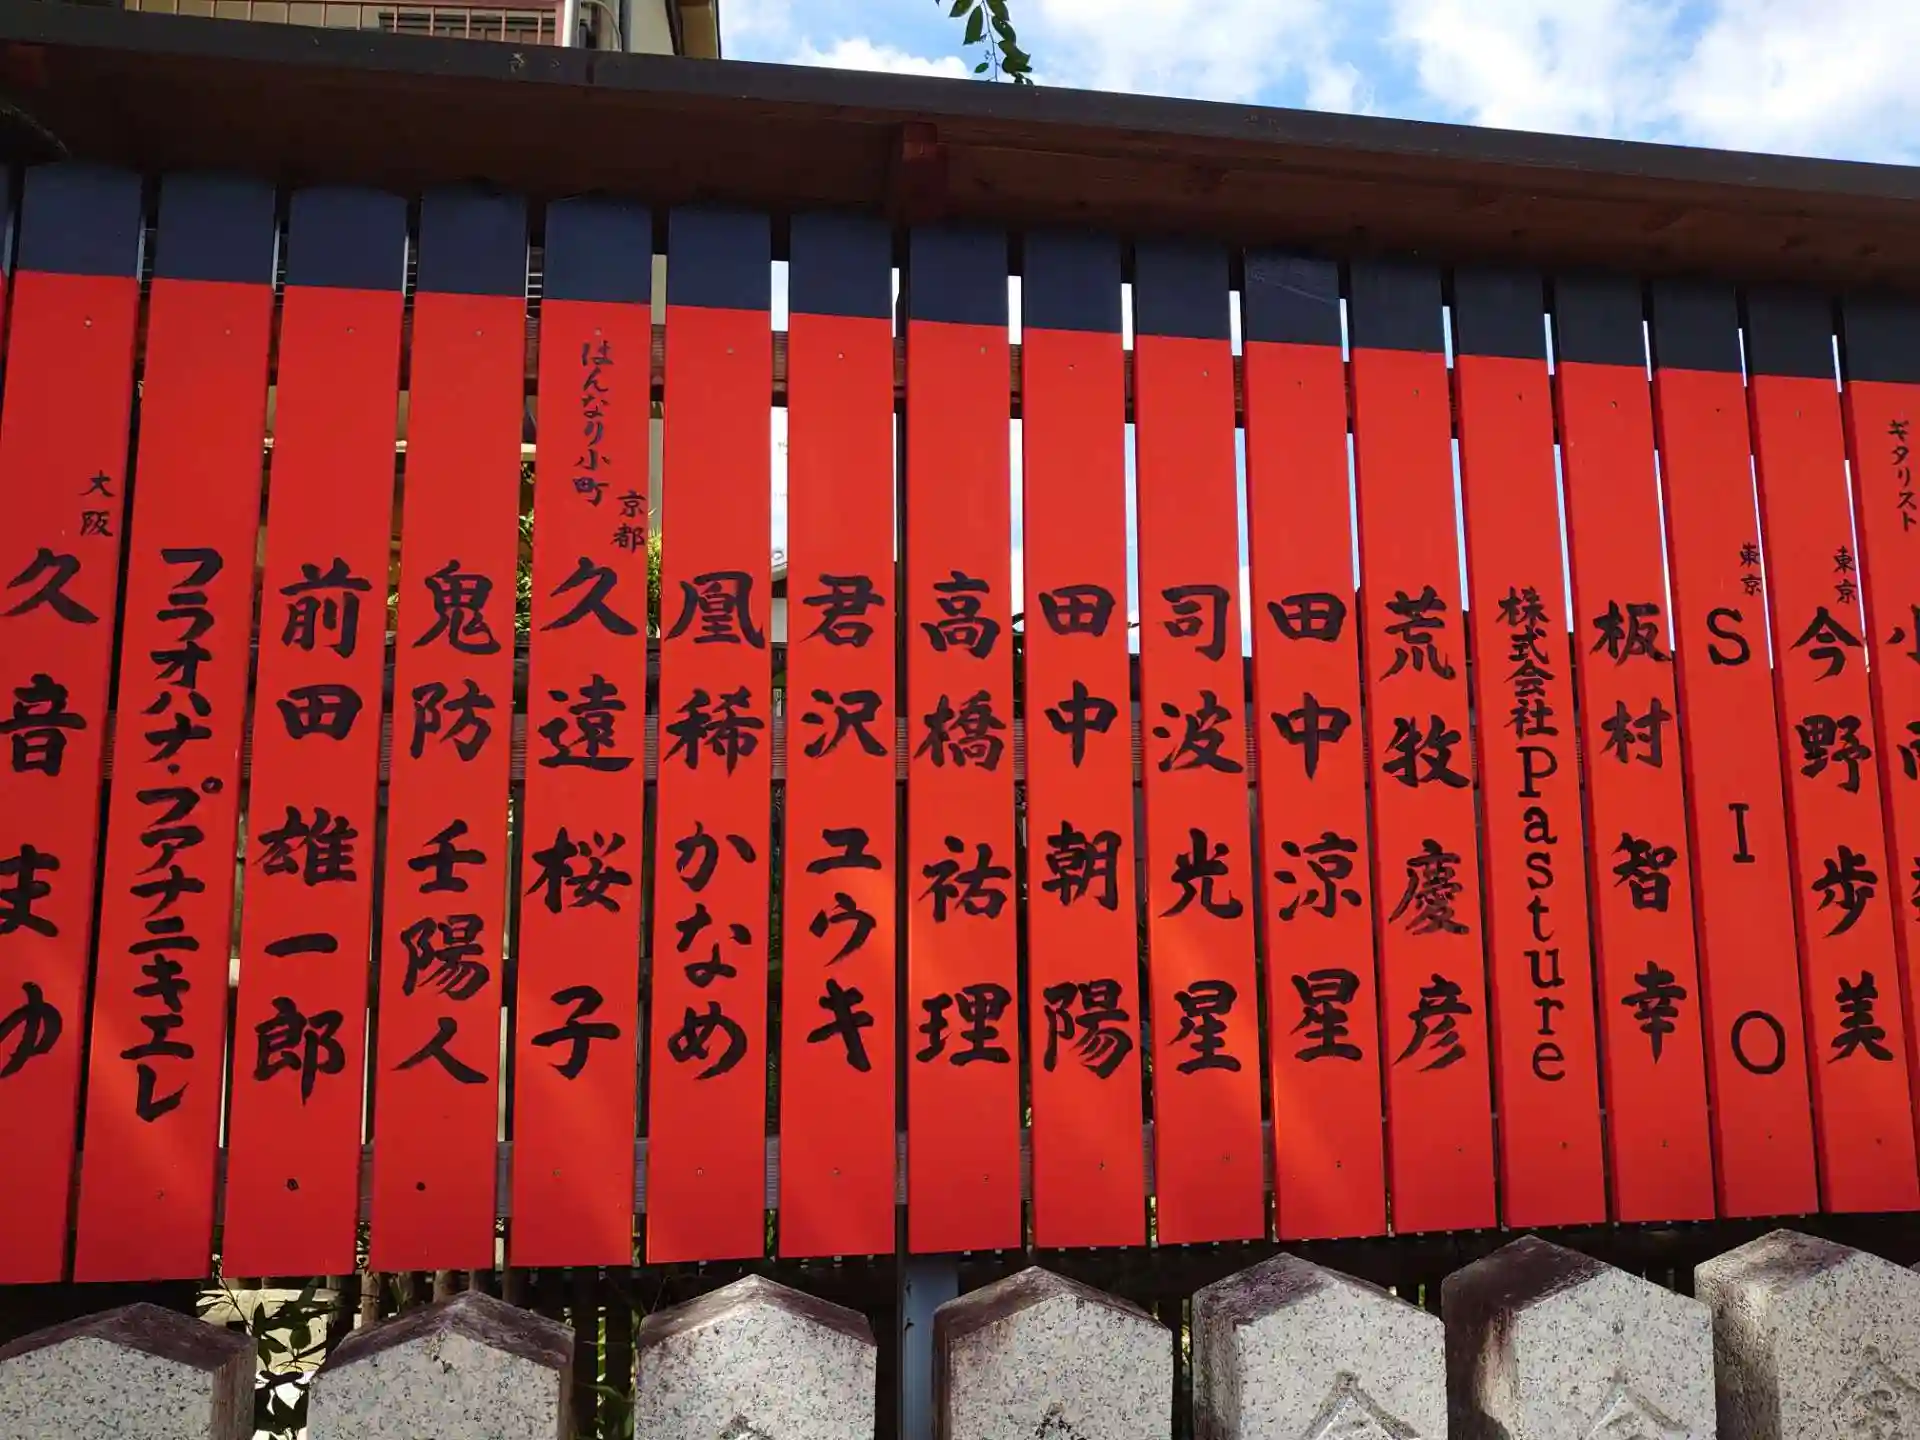 ギタリスト
東京
今野歩美
東京
SIO
板村智幸
株式会社Pasture
荒牧慶彦
田中涼星
司波光星
田中朝陽
高橋祐理
君沢ユウキ
凰稀かなめ
はんなり小町
京都
久遠桜子
鬼防壬陽人
前田雄一郎
フラオハナ・プアナニキエレ
大阪
久音まゆ